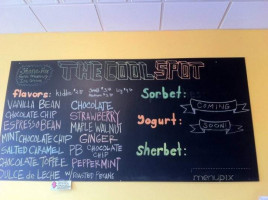 THE COOL SPOT
flavors:
VANILLA BEAN
CHOCOLATE CHIP
ESPRESSO BEAN
MINT CHOCOLATE CHIP
SALTED CARAMEL
CHOCOLATE TOFFEE
DULCE de LECHE
CHOCOLATE
STRAWBERRY
MAPLE WALNUT
GINGER
PB CHOCOLATE CHIP
PEPPERMINT
Sorbet:
Yogurt:
Sherbet:
COMING
SOON!
menupix